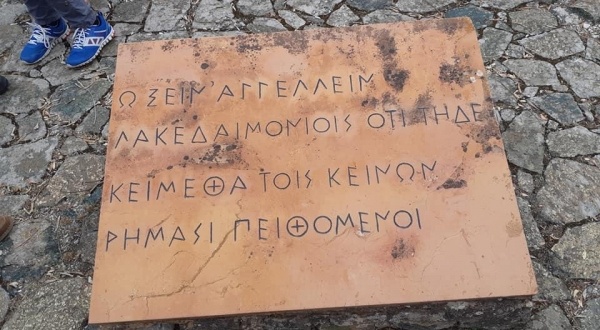 Ω ΞΕΙΝ' ΑΓΓΕΛΛΕΙΝ
ΛΑΚΕΔΑΙΜΟΝΙΟΙΣ ΟΤΙ ΤΗΔΕ
ΚΕΙΜΕΘΑ ΤΟΙΣ ΚΕΙΝΩΝ
ΡΗΜΑΣΙ ΠΕΙΘΟΜΕΝΟΙ